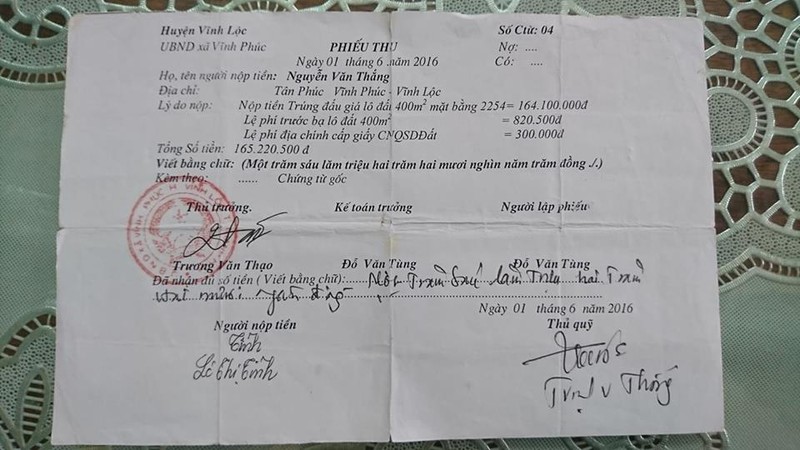 Huyện Vĩnh Lộc Số Ctừ: 04
UBND xã Vĩnh Phúc PHIẾU THU Nợ: ....
Ngày 01 tháng 6 năm 2016 Có: ....
Họ, tên người nộp tiền: Nguyễn Văn Thắng
Địa chỉ: Tân Phúc Vĩnh Phúc - Vĩnh Lộc
Lý do nộp: Nộp tiền Trúng đấu giá lô đất 400m² mặt bằng 2254= 164.100.000đ
Lệ phí trước bạ lô đất 400m² = 820.500đ
Lệ phí địa chính cấp giấy CNQSDĐất = 300.000đ
Tổng Số tiền: 165.220.500 đ
Viết bằng chữ: (Một trăm sáu lăm triệu hai trăm hai mươi nghìn năm trăm đồng ./.)
Kèm theo: ...... Chứng từ gốc
Thủ trưởng. Kế toán trưởng Người lập phiếu
Trương Văn Thạo Đỗ Văn Tùng Đỗ Văn Tùng
Đã nhận đủ số tiền ( Viết bằng chữ): Một Trăm Sáu lăm Triệu hai Trăm
hai mươi nghìn đồng
Ngày 01 tháng 6 năm 2016
Người nộp tiền Thủ quỹ
Tính
Lê Thị Tính
Trịnh V Thống